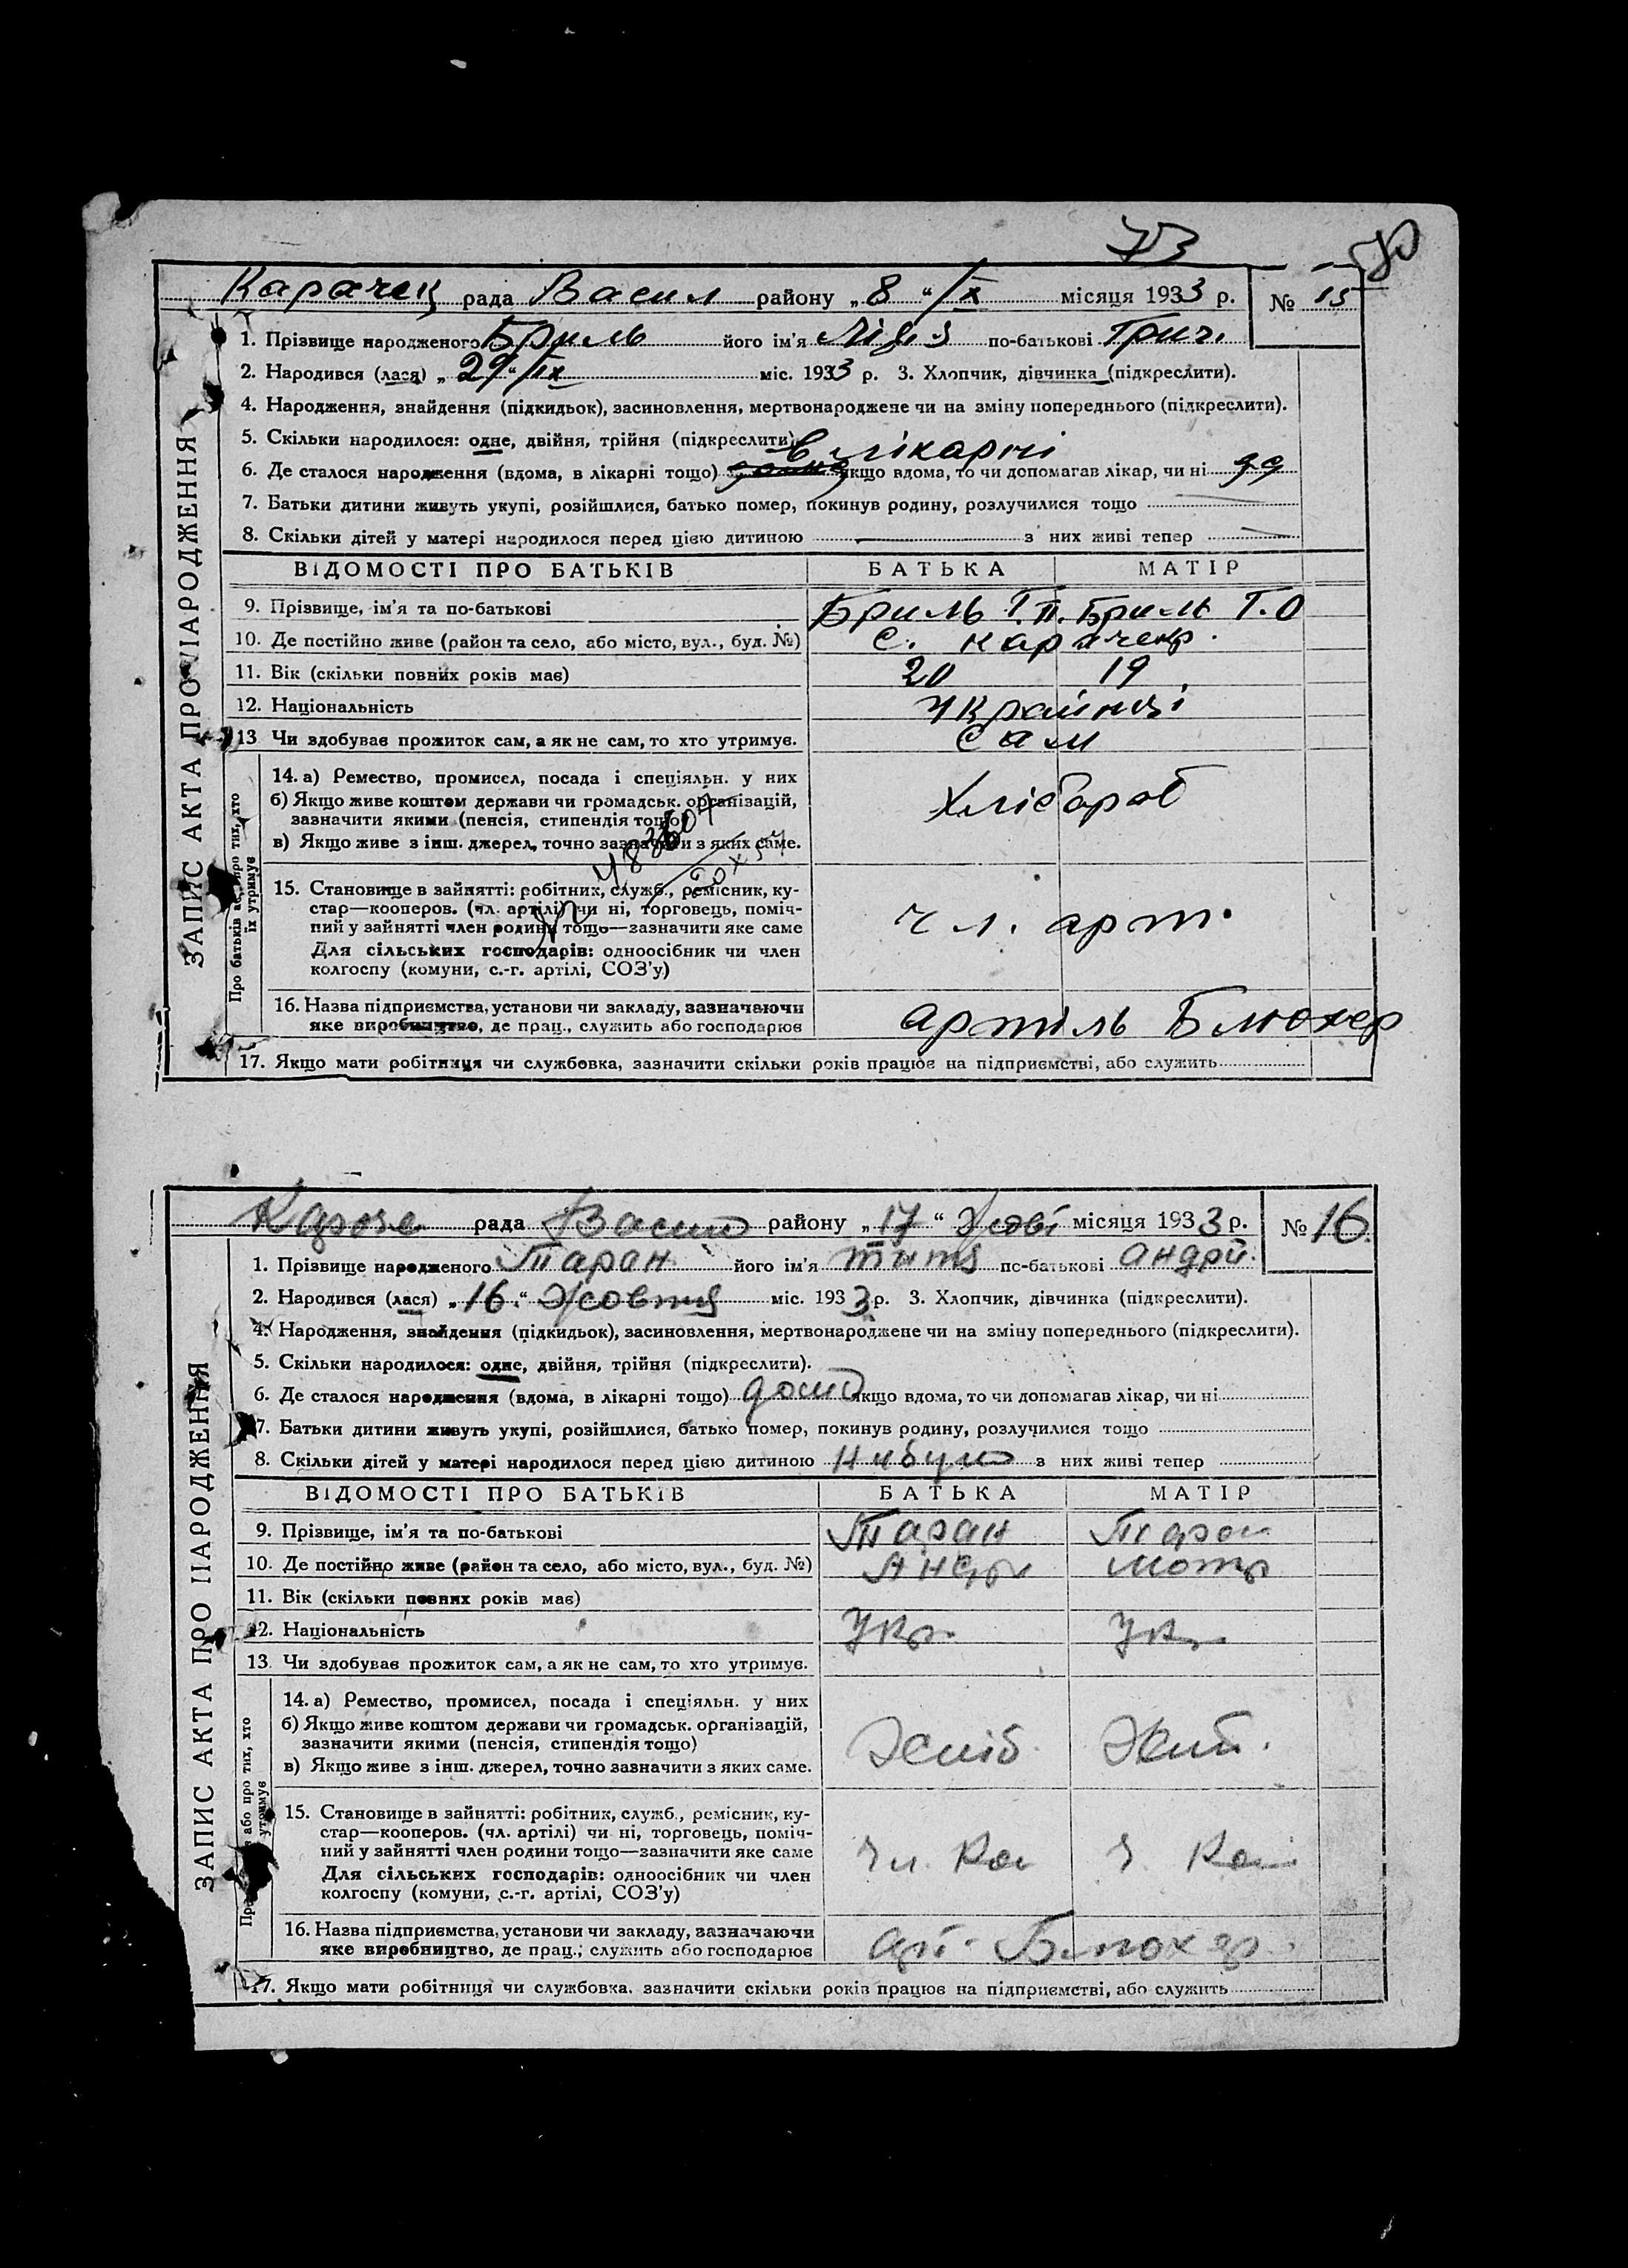 73
70
Карачек рада Васил району „ 8 “ /ІХ місяця 1933 р. № 15
ЗАПИС АКТА ПРО НАРОДЖЕННЯ
1. Прізвище народженого Бриль його ім'я Лідія по-батькові Григ.
2. Народився (лася) „ 29 “ /ІХ міс. 1933 р. 3. Хлопчик, дівчинка (підкреслити).
4. Народження, знайдення (підкидьок), засиновлення, мертвонароджене чи на зміну попереднього (підкреслити).
5. Скільки народилося: одне, двійня, трійня (підкреслити)
в лікарні
6. Де сталося народження (вдома, в лікарні тощо) якщо вдома, то чи допомагав лікар, чи ні
7. Батьки дитини живуть укупі, розійшлися, батько помер, покинув родину, розлучилися тощо
8. Скільки дітей у матері народилося перед цією дитиною — з них живі тепер —
ВІДОМОСТІ ПРО БАТЬКІВ БАТЬКА МАТІР
9. Прізвище, ім'я та по-батькові Бриль Г. П. Бриль Г. О
10. Де постійно живе (район та село, або місто, вул., буд. №) с. Карачек
11. Вік (скільки повних років має) 20 19
12. Національність українці
13 Чи здобуває прожиток сам, а як не сам, то хто утримує. Сам
Про батьків або про тих, хто їх утримує
14. а) Ремество, промисел, посада і спеціяльн. у них Хлібороб
б) Якщо живе коштом держави чи громадськ. організацій,
зазначити якими (пенсія, стипендія тощо)
в) Якщо живе з інш. джерел, точно зазначити з яких саме.
15. Становище в зайнятті: робітник, служб., ремісник, ку-
стар—кооперов. (чл. артілі) чи ні, торговець, поміч-
ний у зайнятті член родини тощо—зазначити яке саме чл. арт.
Для сільських господарів: одноосібник чи член
колгоспу (комуни, с.-г. артілі, СОЗ'у)
16. Назва підприємства, установи чи закладу, зазначаючи
яке виробництво, де прац., служить або господарює артіль Блюхер
17. Якщо мати робітниця чи службовка, зазначити скільки років працює на підприємстві, або служить
рада Васил району „ 17 “ Жовт місяця 1933 р. № 16
ЗАПИС АКТА ПРО НАРОДЖЕННЯ
1. Прізвище народженого Таран його ім'я по-батькові Андрій.
2. Народився (лася) „ 16. “ Жовтня міс. 1933 р. 3. Хлопчик, дівчинка (підкреслити).
4. Народження, знайдення (підкидьок), засиновлення, мертвонароджене чи на зміну попереднього (підкреслити).
5. Скільки народилося: одне, двійня, трійня (підкреслити).
6. Де сталося народження (вдома, в лікарні тощо) дома якщо вдома, то чи допомагав лікар, чи ні
7. Батьки дитини живуть укупі, розійшлися, батько помер, покинув родину, розлучилися тощо
8. Скільки дітей у матері народилося перед цією дитиною Нибуло з них живі тепер
ВІДОМОСТІ ПРО БАТЬКІВ БАТЬКА МАТІР
9. Прізвище, ім'я та по-батькові Таран Таран
10. Де постійно живе (район та село, або місто, вул., буд. №) Андрі Мотр
11. Вік (скільки повних років має)
12. Національність Укр. Укр.
13. Чи здобуває прожиток сам, а як не сам, то хто утримує.
або про тих, хто утримує
14. а) Ремество, промисел, посада і спеціяльн. у них
б) Якщо живе коштом держави чи громадськ. організацій,
зазначити якими (пенсія, стипендія тощо) Хліб. Хліб.
в) Якщо живе з інш. джерел, точно зазначити з яких саме.
15. Становище в зайнятті: робітник, служб., ремісник, ку-
стар—кооперов. (чл. артілі) чи ні, торговець, поміч-
ний у зайнятті член родини тощо—зазначити яке саме Чл. Кол Ч. Кол
Для сільських господарів: одноосібник чи член
колгоспу (комуни, с.-г. артілі, СОЗ'у)
16. Назва підприємства, установи чи закладу, зазначаючи
яке виробництво, де прац., служить або господарює арт. Блюхер.
17. Якщо мати робітниця чи службовка, зазначити скільки років працює на підприємстві, або служить